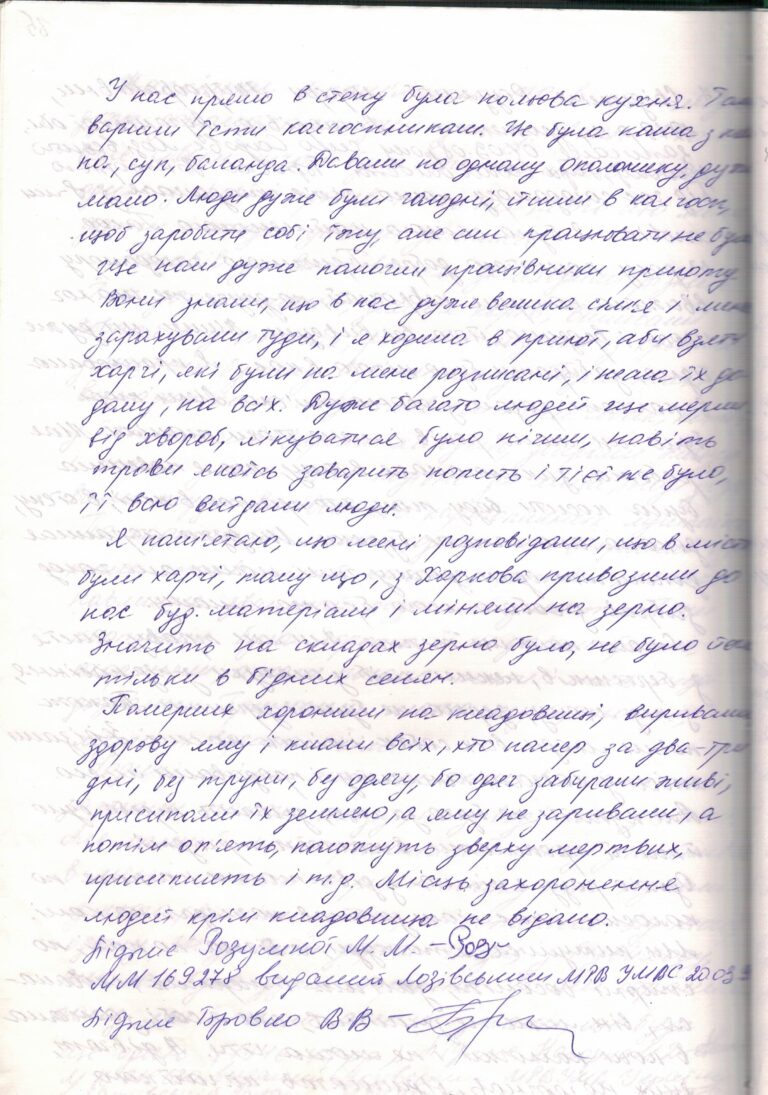 У нас прямо в степу була польова кухня. Там
варили їсти колгоспникам. Це була каша з
па, суп, баланда. Давали по одному ополонику, дуже
мало. Люди дуже були голодні, йшли в колгосп,
щоб заробити собі їжу, але сил працювати не було
Ще нам дуже помогли працівники приюту
Вони знали, що в нас дуже велика сім'я і мене
зарахували туди, і я ходила в приют, аби взяти
харчі, які були на мене розписані, і несла їх до-
дому, на всіх. Дуже багато людей ще мерли
від хвороб, лікуватися було нічим, навіть
трови якоїсь заварить попить і тієї не було,
її всю виїдали люди.
Я пам'ятаю, що мені розповідали, що в місті
були харчі, тому що, з Харкова привозили до
нас буд. матеріали і міняли на зерно.
Значить на складах зерно було, не було його
тільки в бідних семян.
Померших хоронили на кладовищі, виривали
здорову яму і клали всіх, хто помер за два-три
дні, без труни, без одягу, бо одяг забирали живі,
присипали їх землею, а яму не заривали, а
потім оп'ять, положуть зверху мертвих,
присиплять і т.д. Місць захоронення
людей крім кладовища не відомо.
Підпис Розумної М. М. – Роз
ММ 169278 виданий Лозівським МРВ УМВС 20 03
Підпис Бровко В В –